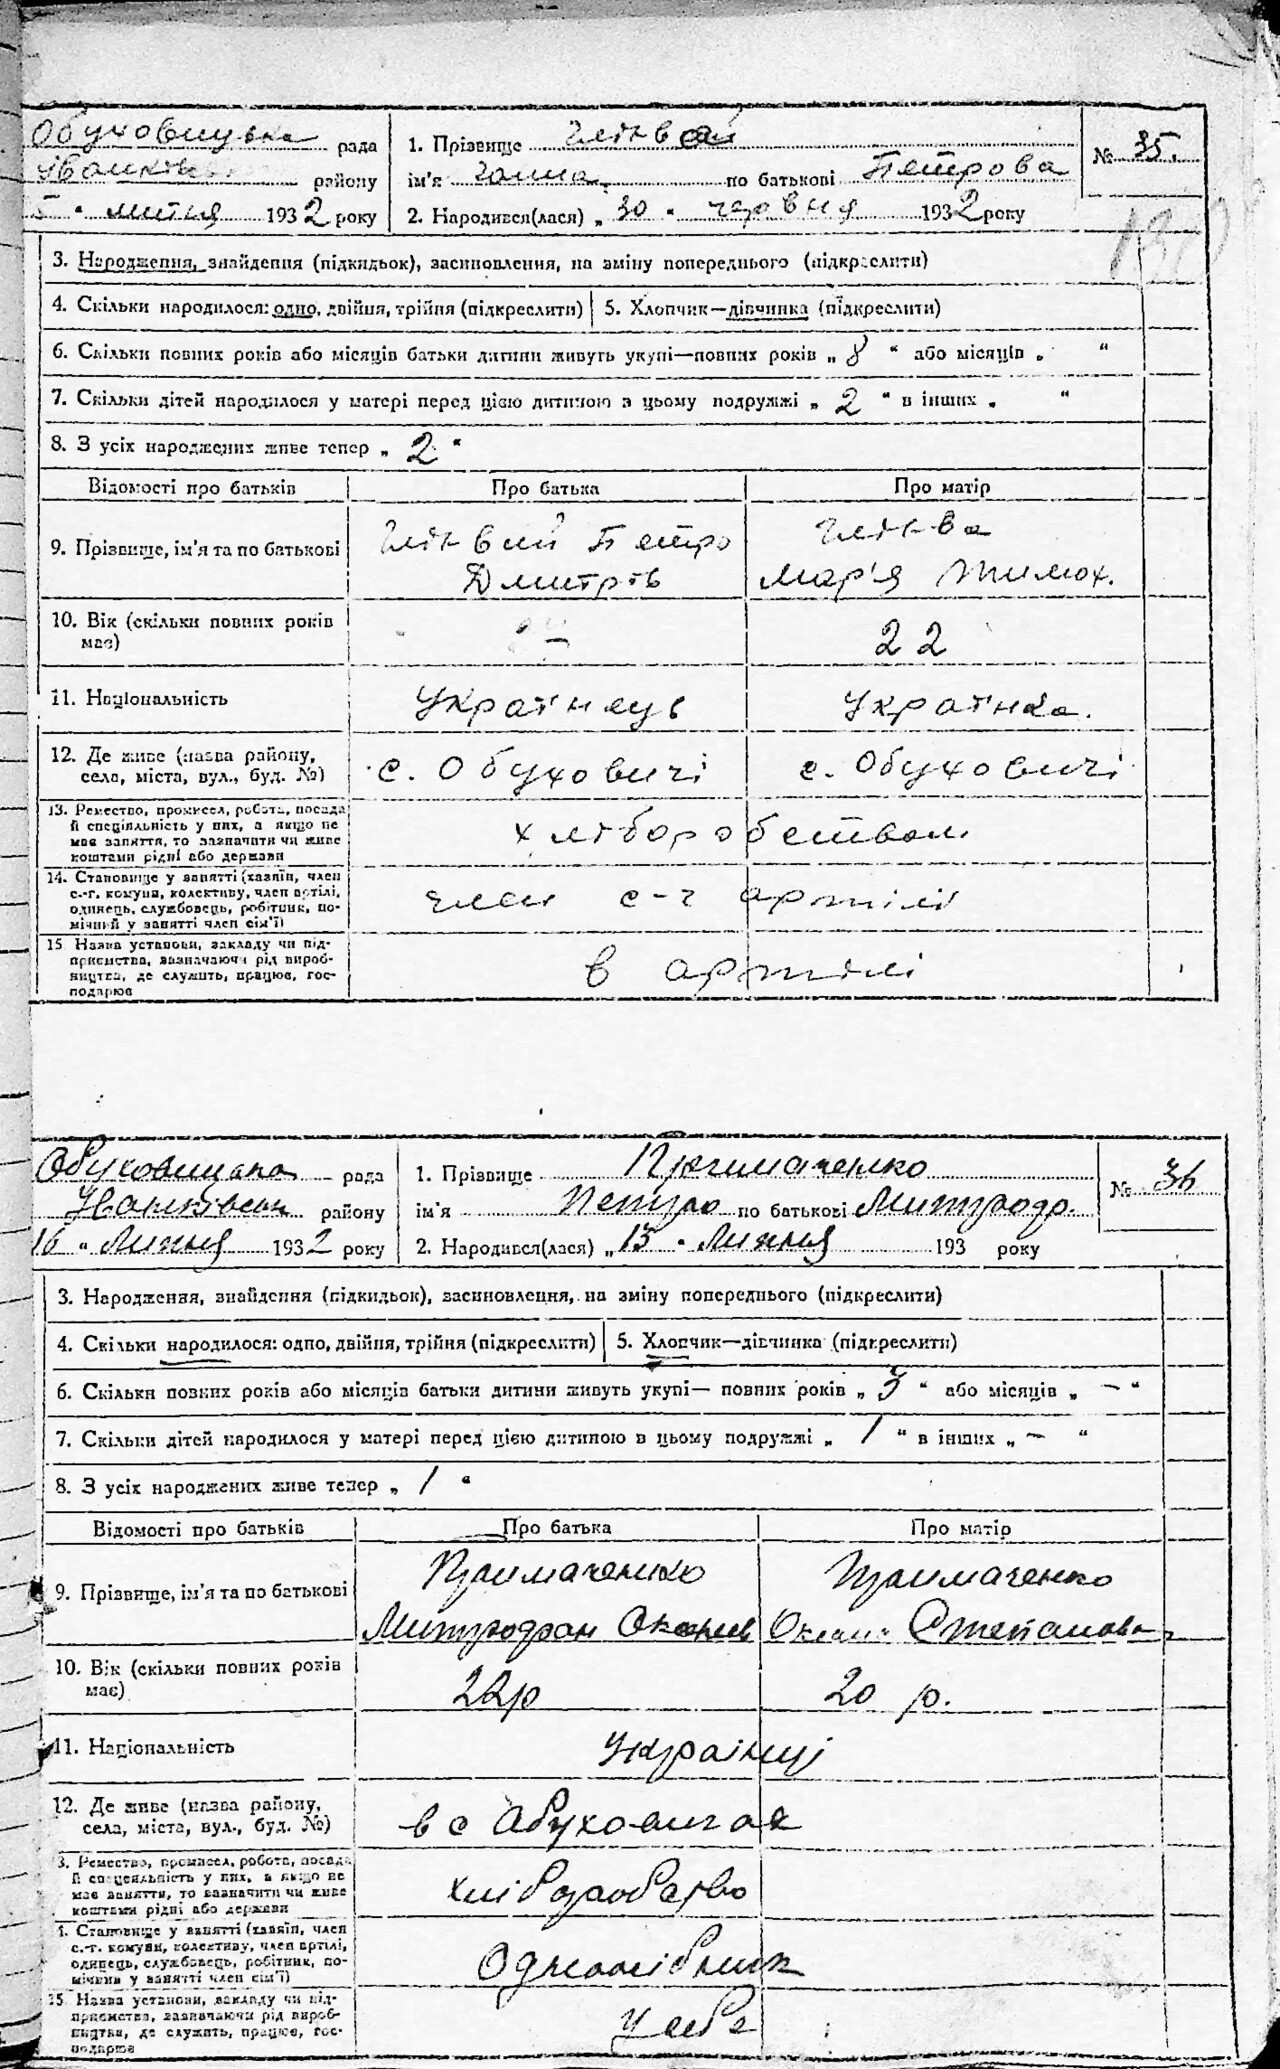 Обуховицька рада
Іванків району
5 " липня 1932 року
1. Прізвище
ім'я Ганна по батькові Петрова
2. Народився(лася) „ 30 " червня 1932 року
№ 35.
3. Народження, знайдення (підкидьок), засиновлення, на зміну попереднього (підкреслити)
4. Скільки народилося: одно, двійня, трійня (підкреслити) 5. Хлопчик—дівчинка (підкреслити)
6. Скільки повних років або місяців батьки дитини живуть укупі—повних років „ 8 " або місяців „ "
7. Скільки дітей народилося у матері перед цією дитиною в цьому подружжі „ 2 " в інших „ "
8. З усіх народжених живе тепер „ 2 "
Відомості про батьків Про батька Про матір
9. Прізвище, ім'я та по батькові
Петро
Дмитрів Мар'я Тимох.
10. Вік (скільки повних років
має) 22
11. Національність Українець Українка.
12. Де живе (назва району,
села, міста, вул., буд. №) с. Обуховичі с. Обуховичі
13. Ремество, промисел, робота, посада
й спеціяльність у них, а якщо не
має заняття, то зазначити чи живе
коштами рідні або держави
хліборобством
14. Становище у занятті (хазяїн, член
с.-г. комуни, колективу, член артілі,
одинець, службовець, робітник, по-
мічний у занятті член сім'ї)
член с-г артілі
15 Назва установи, закладу чи під-
приємства, зазначаючи рід вироб-
ництва, де служить, працює, гос-
подарює
в артілі
Обуховицька рада
Іванківськ району
16 " Липня 1932 року
1. Прізвище Примаченко
ім'я Петро по батькові Митрофр.
2. Народився(лася) „ 15 " Липня 193 року
№ 36
3. Народження, знайдення (підкидьок), засиновлення, на зміну попереднього (підкреслити)
4. Скільки народилося: одно, двійня, трійня (підкреслити) 5. Хлопчик—дівчинка (підкреслити)
6. Скільки повних років або місяців батьки дитини живуть укупі— повних років „ 3 " або місяців „ — "
7. Скільки дітей народилося у матері перед цією дитиною в цьому подружжі „ 1 " в інших „ — "
8. З усіх народжених живе тепер „ 1 "
Відомості про батьків Про батька Про матір
9. Прізвище, ім'я та по батькові
Примаченко Примаченко
Митрофан Оксана Степанова
10. Вік (скільки повних років
має) 22р 20 р.
11. Національність Українці
12. Де живе (назва району,
села, міста, вул., буд. №) в с Абуховичах
3. Ремество, промисел, робота, посада
й спеціяльність у них, а якщо не
має заняття, то зазначити чи живе
коштами рідні або держави
хліборобство
4. Становище у занятті (хазяїн, член
с.-г. комуни, колективу, член артілі,
одинець, службовець, робітник, по-
мічний у занятті член сім'ї)
Одноосібник
15 Назва установи, закладу чи під-
приємства, зазначаючи рід вироб-
ництва, де служить, працює, гос-
подарює
У себе